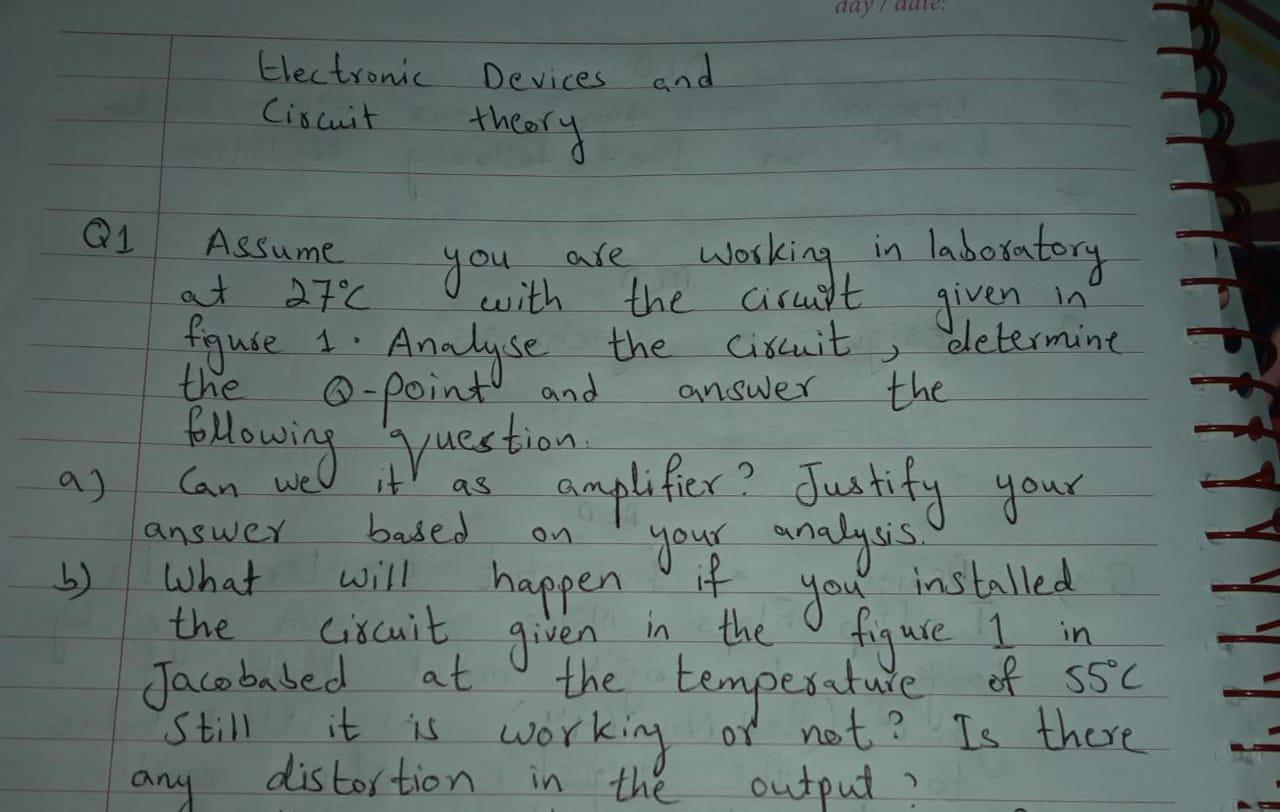 day / date:
Electronic Devices and
Circuit theory
Q1 Assume you are working in laboratory
at 27°C with the circuit given in
figure 1. Analyse the circuit, determine
the Q-point and answer the
following question.
a) Can we it as amplifier? Justify your
answer based on your analysis.
b) What will happen if you installed
the circuit given in the figure 1 in
Jacobabed at the temperature of 55°C
Still it is working or not? Is there
any distortion in the output?